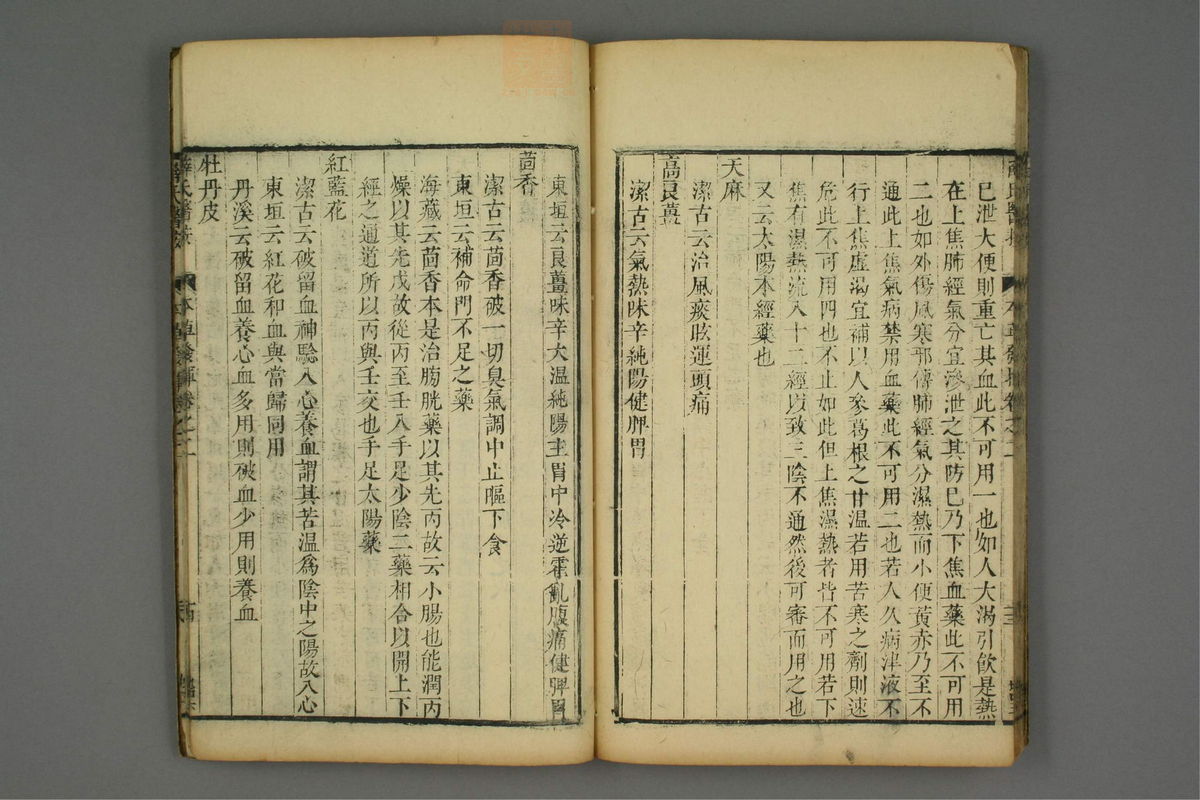 巳泄大便則重亡其血此不可用一也如人大渴引飲是熱
在上焦肺經氣分宜滲泄之其防巳乃下焦血藥此不可用
二也如外傷風寒邪傳肺經氣分濕熱而小便黃赤乃至不
通此上焦氣病禁用血藥此不可用二也若人久病津液不
行上焦虛渴宜補以人參葛根之甘溫若用苦寒之劑則速
危此不可用四也不止如此但上焦濕熱者皆不可用若下
焦有濕熱流入十二經以致三陰不通然後可審而用之也
又云太陽本經藥也
天麻
潔古云治風痰眩運頭痛
高良薑
潔古云氣熱味辛純陽健脾胃
東垣云良薑味辛大溫純陽主胃中冷逆霍亂腹痛健脾胃
茴香
潔古云茴香破一切臭氣調中止嘔下食
東垣云補命門不足之藥
海藏云茴香本是治膀胱藥以其先丙故云小腸也能潤丙
燥以其先戊故從丙至壬入手足少陰二藥相合以開上下
經之通道所以丙與壬交也手足太陽藥
紅藍花
潔古云破留血神驗入心養血謂其苦溫爲陰中之陽故入心
東垣云紅花和血與當歸同用
丹溪云破留血養心血多用則破血少用則養血
牡丹皮
薛氏醫按 本草發揮卷之二